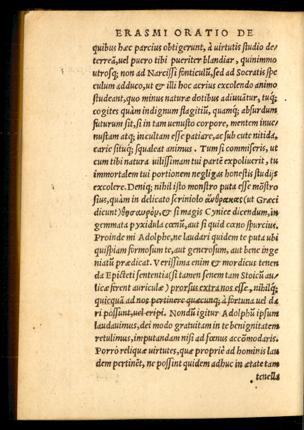 ERASMI ORATIO DE
quibus hæc parcius obtigerunt, à uirtutis studio de⸗
terreā, uel puero tibi pueriter blandiar, quinimmo
utrosq; non ad Narcissi fonticulū, sed ad Socratis spe
culum adduco, ut & illi hoc acrius excolendo animo
studeant, quo minus naturæ dotibus adiuuātur, tuq́;
cogites quàm indignum flagitiū, quamq́; absurdum
futurum sit, si in tam uenusto corpore, mentem inue⸗
nustam atq; incultam esse patiare, ac sub cute nitida,
carie situq́; squaleat animus. Tum si commiseris, ut
cum tibi natura uilissimam tui partē expoliuerit, tu
immortalem tui portionem negligas honestis studijs
excolere. Deniq; nihil isto monstro puta esse mōstro
sius, quàm in delicato scriniolo ἄνθρακας (ut Græci
dicunt) θησαυρὸν, & si magis Cynice dicendum, in
gemmata pyxidula cœnū, aut si quid cœno spurcius.
Proinde mi Adolphe, ne laudari quidem te puta ubi
quispiam formosum te, aut generosum, aut bene inge
niatū prædicat. Verissima enim & mordicus tenen
da Epicteti sententia (si tamen senem tam Stoicū au⸗
licæ ferent auriculæ) prorsus extra nos esse, nihilq́;
quicquā ad nos pertinere quæcunq; à fortuna uel da
ri possunt, uel eripi. Nondū igitur Adolphū ipsum
laudauimus, dei modo gratuitam in te benignitatem
retulimus, imputandam nisi ad fœnus accōmodaris.
Porrò reliquæ uirtutes, quæ propriè ad hominis lau
dem pertinēt, ne possint quidem adhuc in ætate tam
tenella